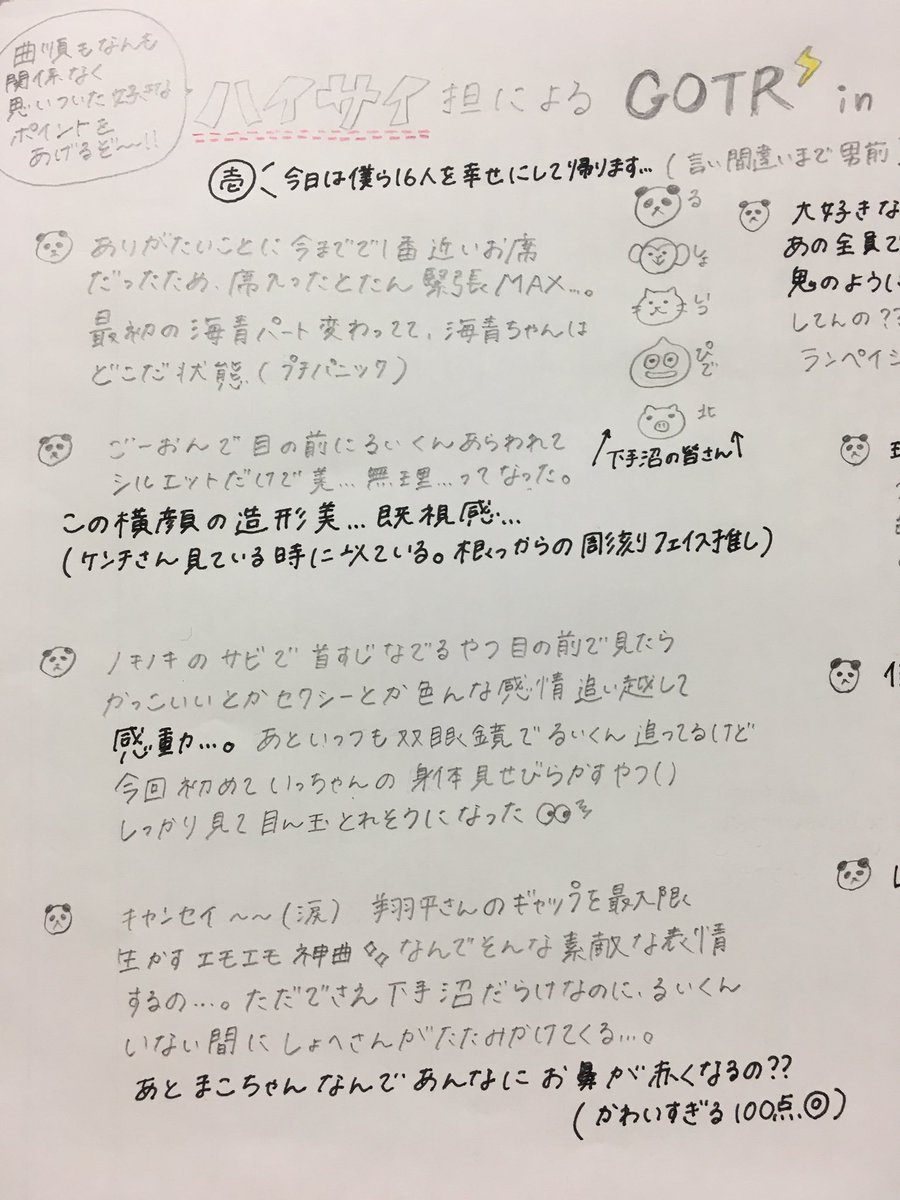 曲順もなんも
関係なく
思いついた好きな
ポイントを
あげるぞ〜〜!!
ハイサイ担による GOTR in
壱 今日は僕ら16人を幸せにして帰ります…(言い間違いまで男前)
ありがたいことに今までで1番近いお席
だったため、席入ったとたん緊張MAX…。
最初の海青パート変わってて、海青ちゃんは
どこだ状態(プチパニック)
る
しょ
いつ
ぴで
北
下手沼の皆さん
ごーおんで目の前にるいくんあらわれて
シルエットだけで美…無理…ってなった。
この横顔の造形美…既視感…
(ケンチさん見ている時に似ている。根っからの彫刻フェイス推し)
ノキノキのサビで首すじなでるやつ目の前で見たら
かっこいいとかセクシーとか色んな感情追い越して
感動…。あといつも双眼鏡でるいくん追ってるけど
今回初めていっちゃんの身体見せびらかすやつ()
しっかり見て目ん玉とれそうになった
キャンセイ〜〜(涙) 翔平さんのギャップを最大限
生かすエモエモ神曲 なんでそんな素敵な表情
するの…。ただでさえ下手沼だらけなのに、るいくん
いない間にしょへさんがたたみかけてくる…。
あとまこちゃんなんであんなにお鼻が赤くなるの??
(かわいすぎる100点◎)
大好きな
あの全員で
鬼のように
してんの??
ランペイシ